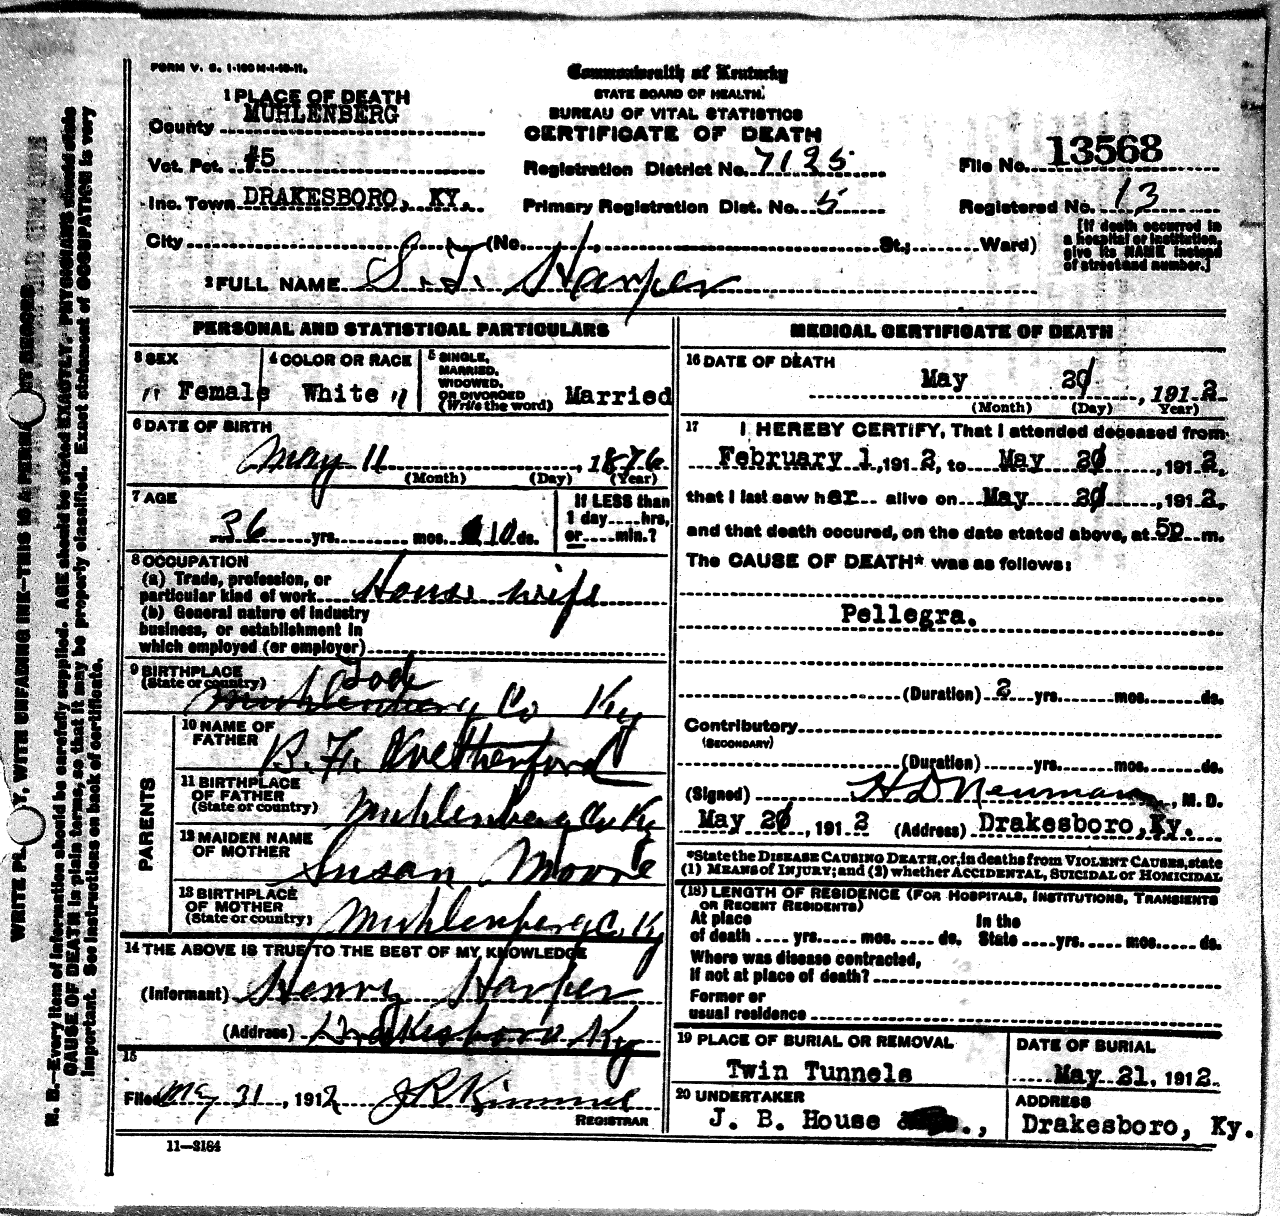 FORM V. S. 1-100 M-1-10-11.
Commonwealth of Kentucky
STATE BOARD OF HEALTH.
BUREAU OF VITAL STATISTICS
CERTIFICATE OF DEATH
1 PLACE OF DEATH
County MUHLENBERG
Vot. Pct. #5
Registration District No. 7195
File No. 13568
Inc. Town DRAKESBORO, KY.
Primary Registration Dist. No. 5
Registered No. 13
City (No. St.; Ward)
[If death occurred in
a hospital or institution,
give its NAME instead
of street and number.]
2 FULL NAME S. T. Harper
PERSONAL AND STATISTICAL PARTICULARS
3 SEX
" Female
4 COLOR OR RACE
White "
5 SINGLE,
MARRIED,
WIDOWED,
OR DIVORCED
(Write the word) Married
6 DATE OF BIRTH
May 11, 1876
(Month) (Day) (Year)
7 AGE
36 yrs. mos. 10 ds.
If LESS than
1 day hrs,
or min.?
8 OCCUPATION
(a) Trade, profession, or
particular kind of work House wife
(b) General nature of industry
business, or establishment in
which employed (or employer)
9 BIRTHPLACE
(State or country) Todd
Muhlenberg Co Ky
PARENTS
10 NAME OF
FATHER B. F.
11 BIRTHPLACE
OF FATHER
(State or country) Muhlenberg Co Ky
12 MAIDEN NAME
OF MOTHER Susan Moore
13 BIRTHPLACE
OF MOTHER
(State or country) Muhlenberg Co. Ky
14 THE ABOVE IS TRUE TO THE BEST OF MY KNOWLEDGE
(Informant) Henry Harper
(Address) Drakesboro Ky
15
Filed May 31, 1912 J R Kimmel
REGISTRAR
11-3184
MEDICAL CERTIFICATE OF DEATH
16 DATE OF DEATH
May 20, 1912
(Month) (Day) Year)
17 I HEREBY CERTIFY, That I attended deceased from
February 1, 1912, to May 20, 1912,
that I last saw her alive on May 20, 1912,
and that death occured, on the date stated above, at 5p m.
The CAUSE OF DEATH* was as follows:
Pellegra.
(Duration) 2 yrs. mos. ds.
Contributory
(SECONDARY)
(Duration) yrs. mos. ds.
(Signed) H D Newman, M. D.
May 20, 1912 (Address) Drakesboro, Ky.
*State the DISEASE CAUSING DEATH, or, in deaths from VIOLENT CAUSES, state
(1) MEANS of INJURY; and (2) whether ACCIDENTAL, SUICIDAL or HOMICIDAL
(18) LENGTH OF RESIDENCE (FOR HOSPITALS, INSTITUTIONS, TRANSIENTS
OR RECENT RESIDENTS)
At place In the
of death yrs. mos. ds. State yrs. mos. ds.
Where was disease contracted,
If not at place of death?
Former or
usual residence
19 PLACE OF BURIAL OR REMOVAL
Twin Tunnels
DATE OF BURIAL
May 21, 1912.
20 UNDERTAKER
J. B. House .,
ADDRESS
Drakesboro, Ky.
N. B.—Every item of information should be carefully supplied. AGE should be stated EXACTLY. PHYSICIANS should state
CAUSE OF DEATH in plain terms, so that it may be properly classified. Exact statement of OCCUPATION is very
important. See instructions on back of certificate.